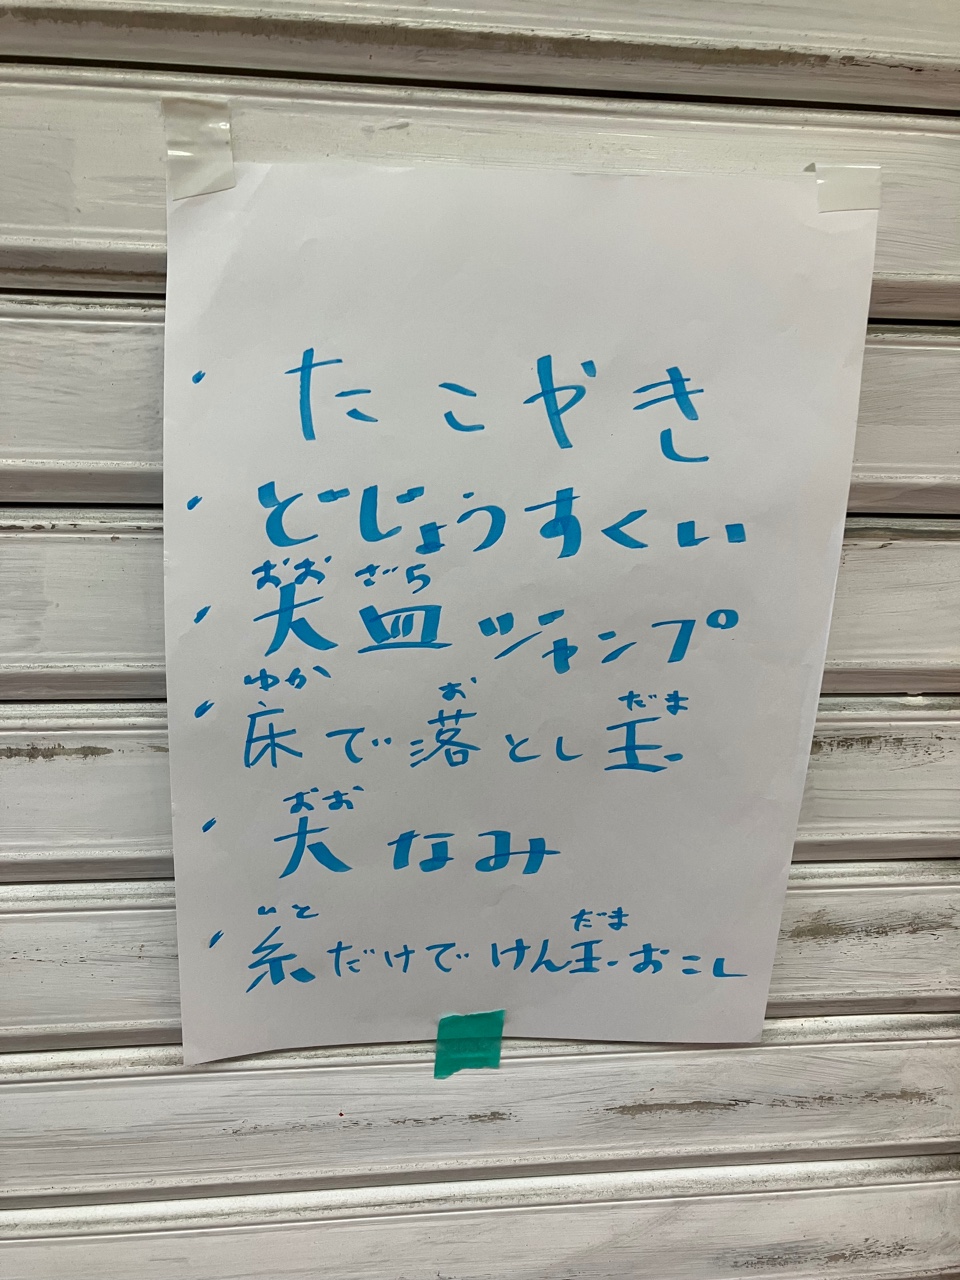 ・たこやき
・どじょうすくい
おお ざら
・大皿ジャンプ
ゆか お だま
・床で落とし玉
おお
・大なみ
いと だま
・糸だけでけん玉おこし